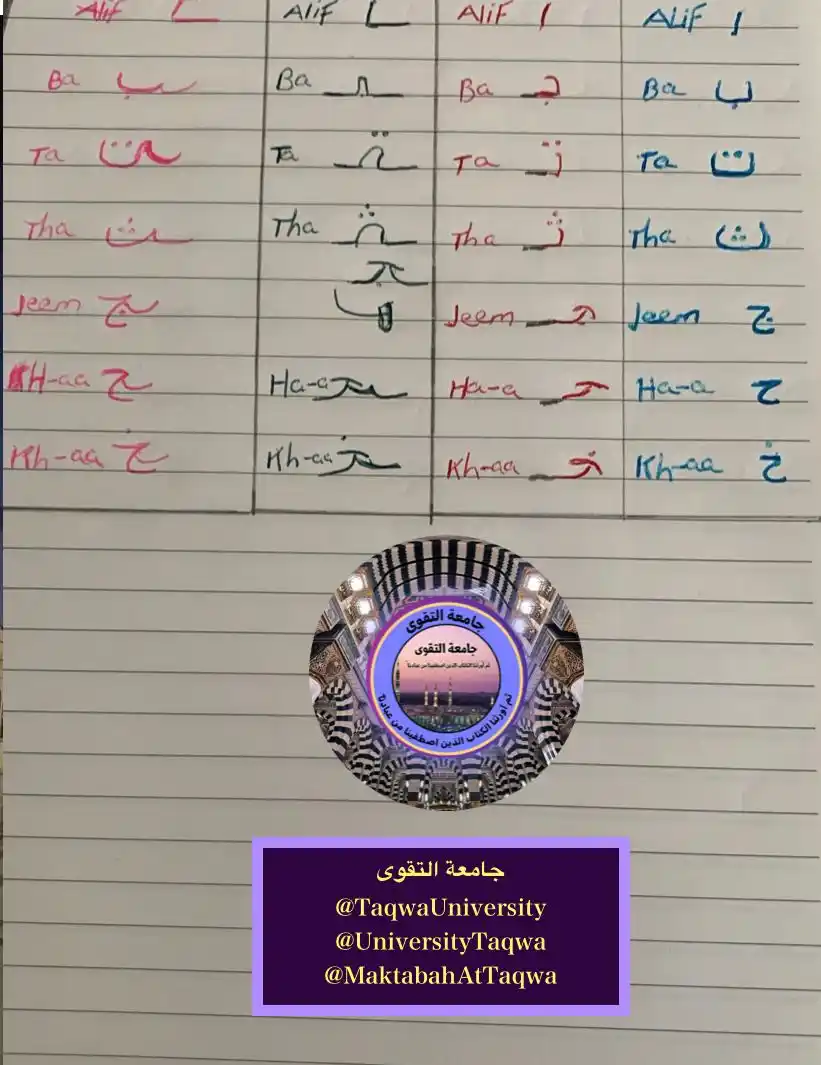 Alif ـا Alif ـا Alif ا Alif ا
Ba ـب Ba ـبـ Ba بـ Ba ب
Ta ـت Ta ـتـ Ta تـ Ta ت
Tha ـث Tha ـثـ Tha ثـ Tha ث
Jeem ـج ـجـ Jeem جـ Jeem ج
H-aa ـح Ha-a ـحـ Ha-a حـ Ha-a ح
Kh-aa ـخ Kh-aa ـخـ Kh-aa خـ Kh-aa خ
جامعة التقوى
جامعة التقوى
ثم أورثنا الكتاب الذين اصطفينا من عبادنا
ثم أورثنا الكتاب الذين اصطفينا من عبادنا
جامعة التقوى
@TaqwaUniversity
@UniversityTaqwa
@MaktabahAtTaqwa